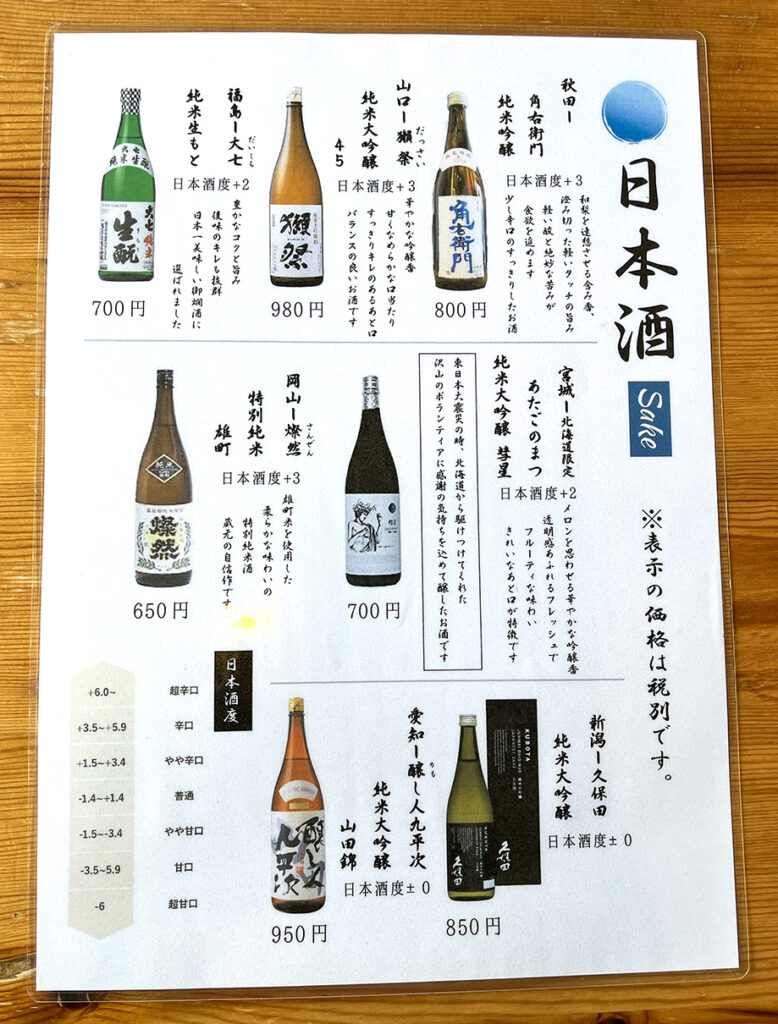 日本酒
Sake
※表示の価格は税別です。
秋田ー
角右衛門
純米吟醸
日本酒度+3
和梨を連想させる含み香、
澄み切った軽いタッチの旨み
軽い酸と絶妙な苦みが
食欲を進めます
少し辛口のすっきりしたお酒
角右衛門
800円
山口ー獺祭
だっさい
純米大吟醸
45
日本酒度+3
華やかな吟醸香
甘くなめらかな口当たり
すっきりキレのあるあと口
バランスの良いお酒です
獺祭
980円
福島ー大七
だいしち
純米生もと
日本酒度+2
豊かなコクと旨み
後味のキレも抜群
日本一美味しい御燗酒に
選ばれました
大七
純米生酛
大七 純米
生酛
700円
宮城ー北海道限定
あたごのまつ
純米大吟醸 彗星
日本酒度+2
メロンを思わせる華やかな吟醸香
透明感あふれるフレッシュで
フルーティな味わい
きれいなあと口が特徴です
東日本大震災の時、北海道から駆けつけてくれた
沢山のボランティアに感謝の気持ちを込めて醸したお酒です
700円
岡山ー燦然
さんぜん
特別純米
雄町
日本酒度+3
雄町米を使用した
柔らかな味わいの
特別純米酒
蔵元の自信作です
純米
燦然
650円
新潟ー久保田
純米大吟醸
日本酒度±0
KUBOTA
JUNMAI DAIGINJO 純米大吟醸
JAPANESE SAKE 日本酒
久保田
KUBOTA
久保田
850円
愛知ー醸し人九平次
かも
純米大吟醸
山田錦
日本酒度±0
醸し人
九平次
950円
日本酒度
+6.0~ 超辛口
+3.5~+5.9 辛口
+1.5~+3.4 やや辛口
-1.4~+1.4 普通
-1.5~-3.4 やや甘口
-3.5~5.9 甘口
-6 超甘口